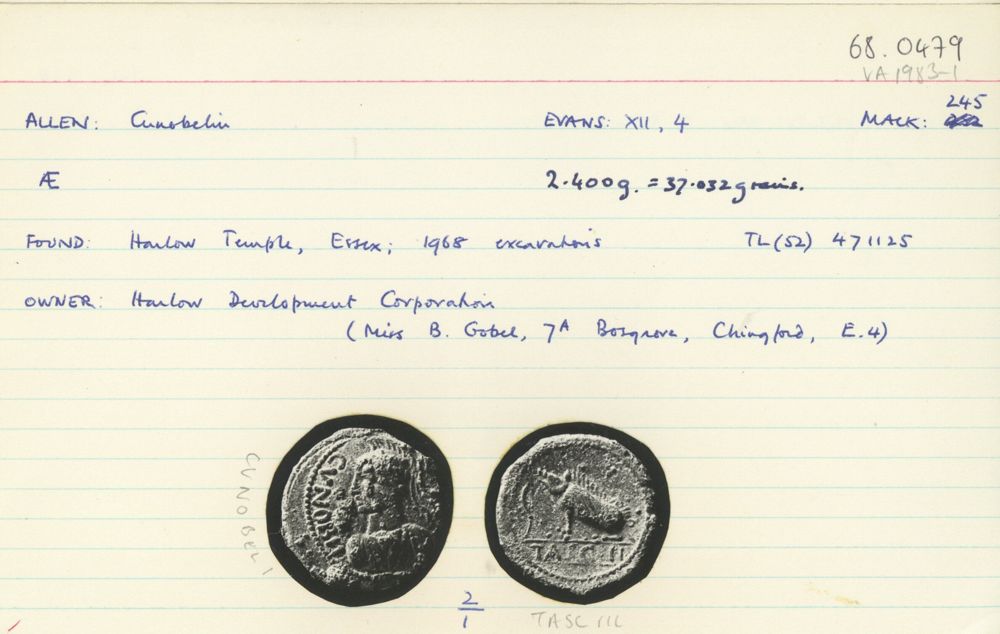 68.0479
VA 1983-1
ALLEN: Cunobelin EVANS: XII, 4 MACK: 245
Æ 2.400g. = 37.032 grains.
FOUND: Harlow Temple, Essex; 1968 excavations TL(52) 471125
OWNER: Harlow Development Corporation
(Miss B. Gobel, 7A Bosgrove, Chingford, E.4)
CUNOBELI
CVNOBELI
TASCIII
2/1
TASC IIL